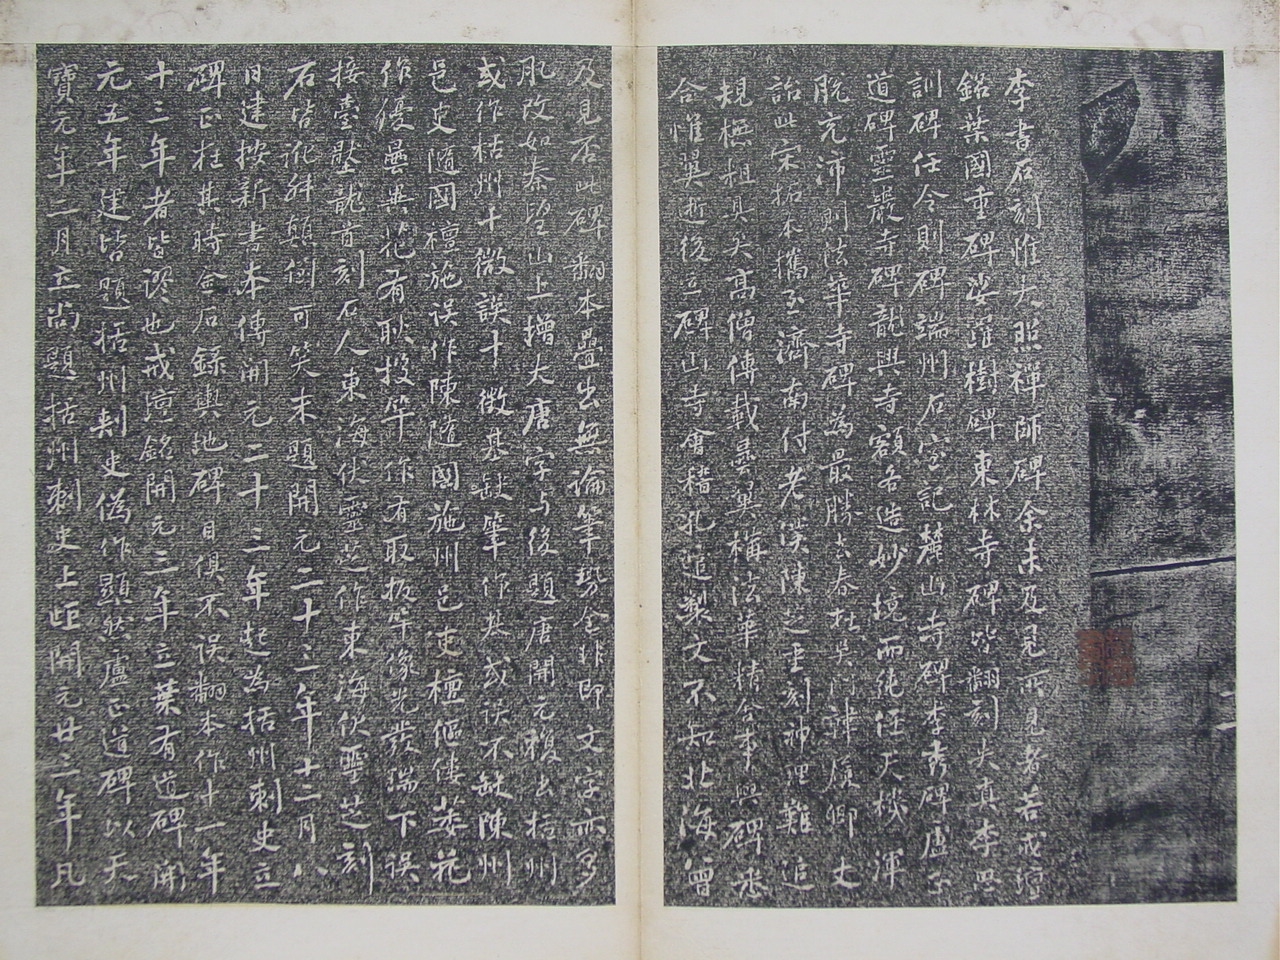 李書石刻惟大照禪師碑余未及見所見者若戒壇
銘葉國重碑娑羅樹碑東林寺碑皆翻刻失真李思
訓碑任令則碑端州石室記麓山寺碑李秀碑盧正
道碑靈巖寺碑龍興寺額各造妙境而純任天機渾
脫充沛則法華寺碑為最勝去春在吳門韓履卿丈
詒此宋拓本攜至濟南付老僕陳芝重刻神理難追
規橅粗具矣高僧傳載曇翼稱法華精舍事與碑悉
合惟翼逝後立碑山寺會稽孔逭製文不知北海曾
及見否此碑翻本疊出無論筆勢全非即文字亦多
肊改如秦望山上增大唐字与後題唐開元複出括州
或作枯州十微誤十徵基缺筆作其或誤不缺陳州
邑吏隨國檀施誤作陳隨國施州邑吏檀傴僂萎花
作優曇異花有耿投竿作有取扳竿像光發瑞下誤
接臺壓龍首刻石人東海伏靈芝作東海伏壐芝刻
石皆訛舛顛倒可笑末題開元二十三年十二月八
日建按新書本傳開元二十三年起為括州刺史立
碑正在其時金石錄輿地碑目俱不誤翻本作十一年
十三年者皆謬也戒壇銘開元三年立葉有道碑開
元五年建皆題括州刺史偽作顯然盧正道碑以天
寶元年二月立尚題括州刺史上距開元廿三年凡